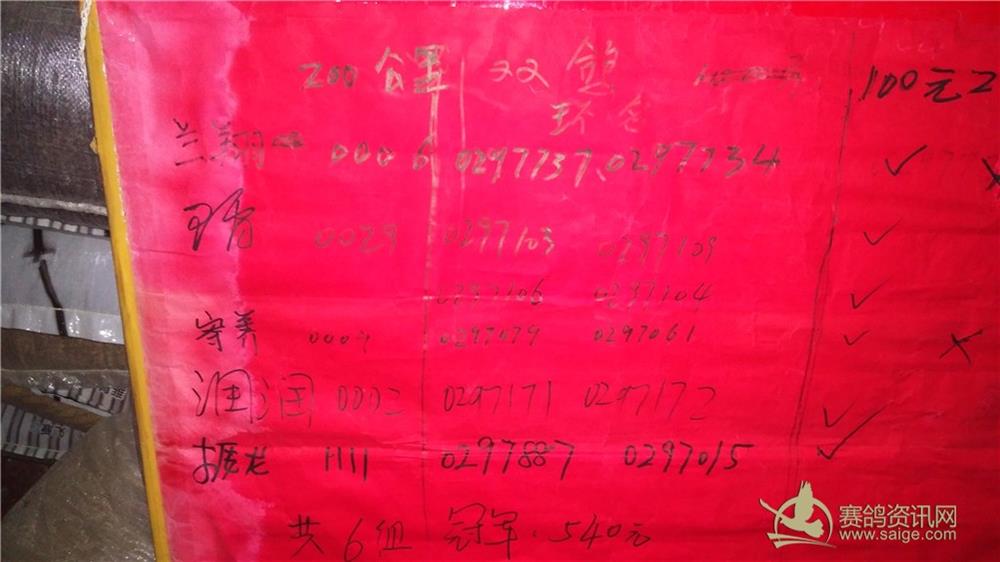 200 双鸽 100元2
环号
兰翔 0006 0297737、0297734 ✓ ✗
0029 0297103 0297109 ✓
0297106 0297104 ✓
寄养 0297079 0297061 ✓ ✗
润润 0002 0297171 0297172 ✓
振龙 1111 0297887 0297015 ✓
共6组 冠军.540元
赛鸽资讯网
www.saige.com